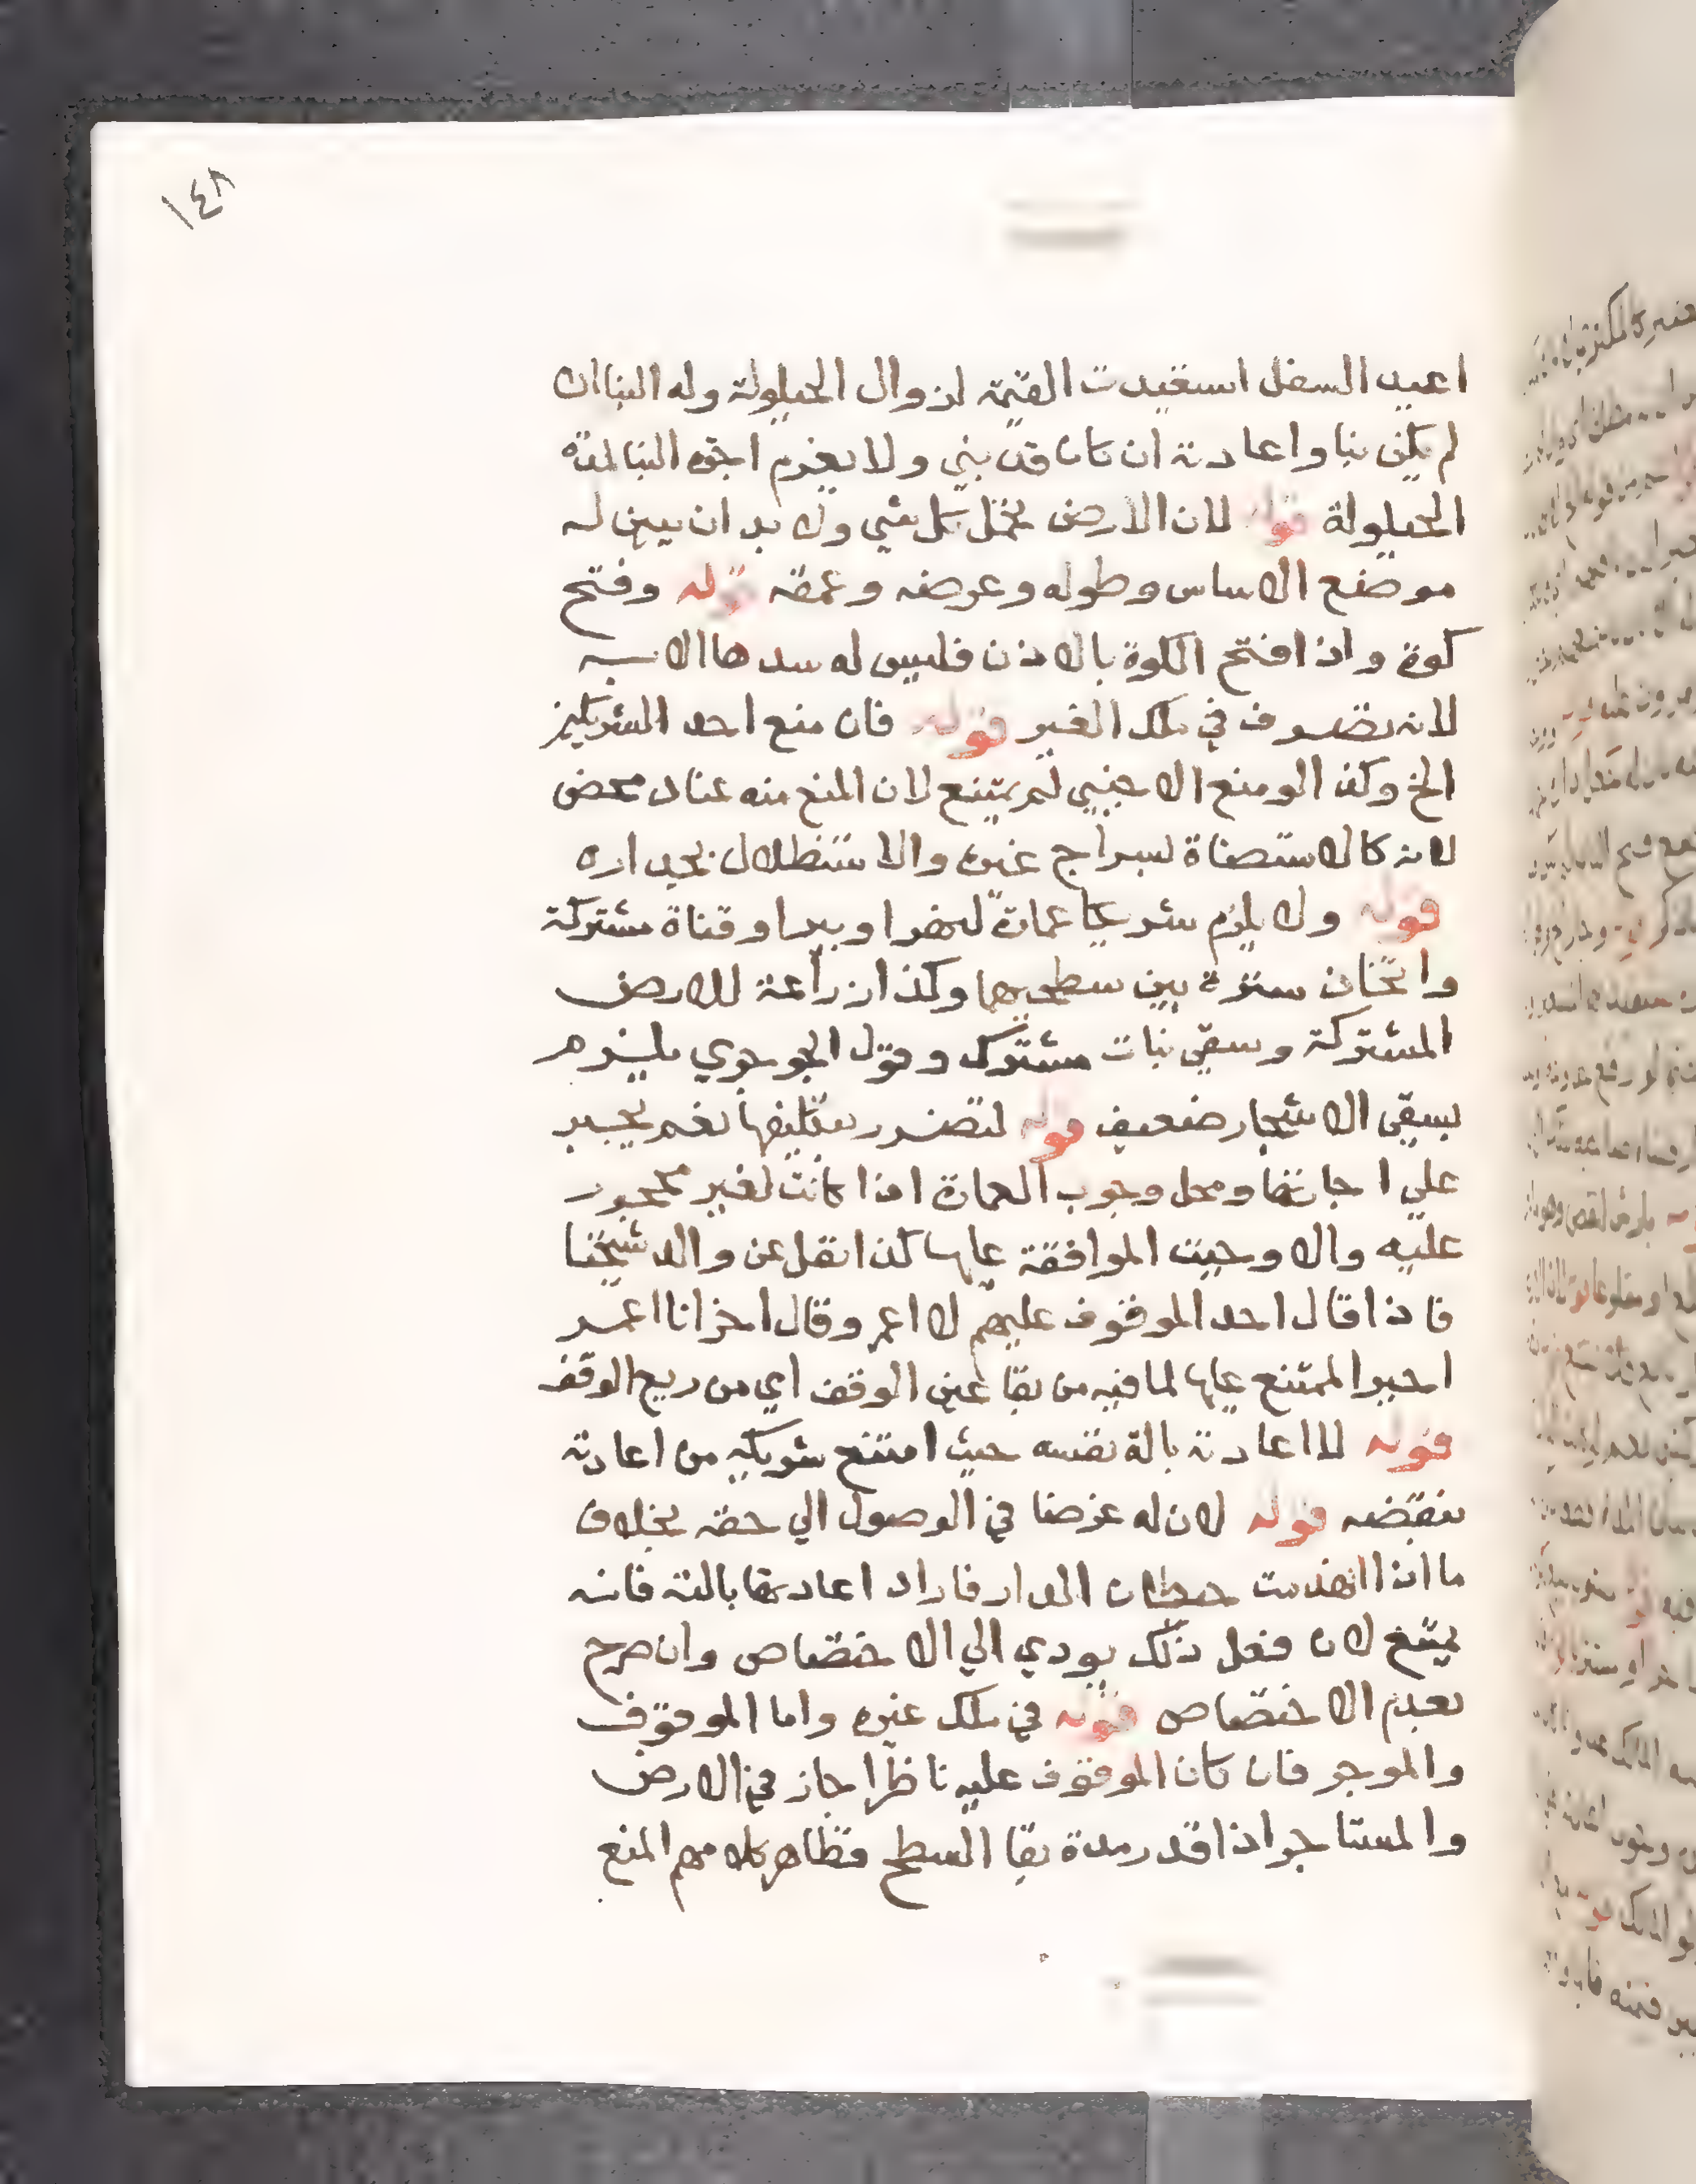 ١٤٨
اعيد السفل استقيدت القيمة لزوال الحيلولة وله البنا ان
لم يكن بنا واعادته ان كان قد بني ولا يغرم اجرة البنا لمدة
الحيلولة قوله لان الارض تحمل كل شي ولا بد ان يبين له
موضع الاساس وطوله وعرضه وعمقه قوله وفتح
كوة واذا فتح الكوة بالاذن فليس له سدها الا به
لانه تصرف في ملك الغير قوله فان منع احد الشريكين
الخ وكذا لو منع الاجنبي لم يمتنع لان المنع منه عناد محض
لانه كالاستضاة لسراج غيره والاستظلال بجداره
قوله ولا يلزم شريكا عمارة لنهر او بير او قناة مشتركة
واتخاذ سترة بين سطحيهما وكذا زراعة للارض
المشتركة وسقي نبات مشترك وقول الجوجري يلزم
بسقي الاشجار ضعيف قوله لتضرر بتكليفها نعم يجبر
علي اجارتها ومحل وجوب العمارة اذا كانت لغير محجور
عليه والا وجبت الموافقة عليها كذا نقل عن والد شيخنا
فاذا قال احد الموقوف عليهم لا اعمر وقال اخر انا اعمر
اجبر الممتنع عليها لما فيه من بقا عين الوقف اي من ريع الوقف
قوله لا اعادته بالة نفسه حيث امتنع شريكه من اعادته
بنقضه قوله لان له غرضا في الوصول الي حقه بخلاف
ما اذا انهدمت حيطان الدار فاراد اعادتها بالته فانه
يمتنع لان فعل ذلك يودي الي الاختصاص وان صرح
بعدم الاختصاص قوله في ملك غيره واما الموقوف
والموجر فان كان الموقوف عليه ناظرا جاز في الارض
والمستاجر اذا قدر مدة بقا السطح فظاهر كلامهم المنع